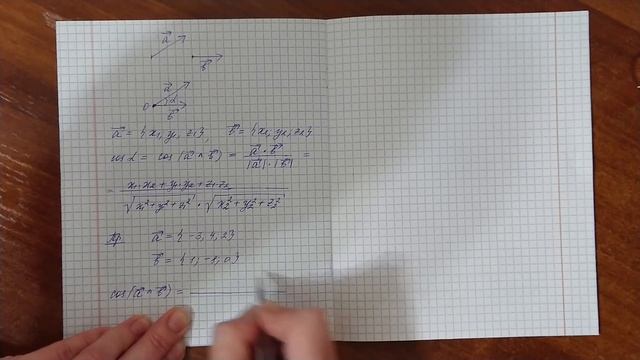 a⃗
b⃗
a⃗
α
0
b⃗
a⃗ = {x₁, y₁, z₁}, b⃗ = {x₂, y₂, z₂}
cos α = cos (a⃗ ^ b⃗) = a⃗ · b⃗ / |a⃗| · |b⃗| =
= x₁·x₂ + y₁·y₂ + z₁·z₂ / √x₁² + y₁² + z₁² · √x₂² + y₂² + z₂²
Пр a⃗ = {-3; 4; 2}
b⃗ = {1; -1; 0}
cos(a⃗ ^ b⃗) =